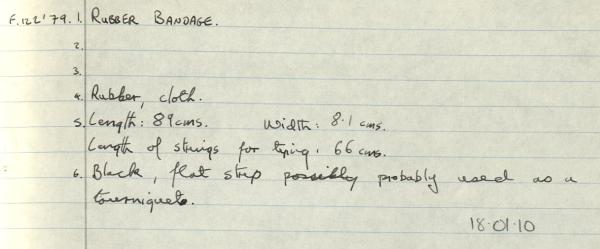 F.122'79. 1. RUBBER BANDAGE.
2.
3.
4. Rubber, cloth.
5. Length: 89 cms. Width: 8.1 cms.
Length of strings for tying: 66 cms.
6. Black, flat strip possibly probably used as a
tourniquet.
18.01.10